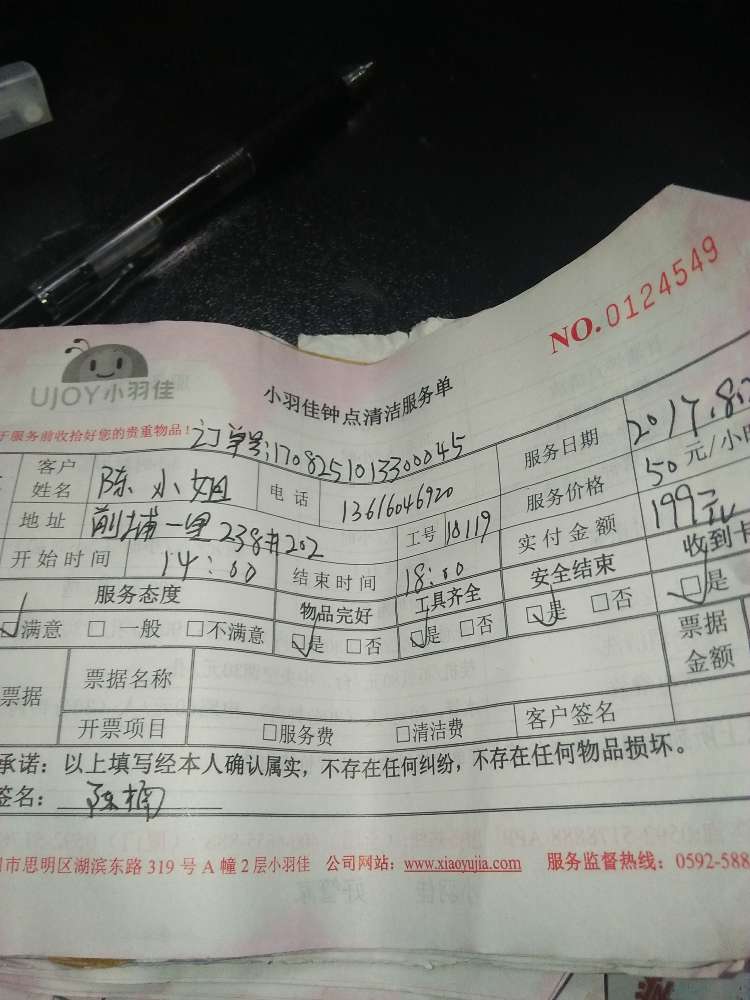 NO.0124549
UJOY小羽佳
小羽佳钟点清洁服务单
于服务前收拾好您的贵重物品！ 订单号:17082510133000045
客户姓名 陈小姐 电话 13616046920 服务日期 2017.8.
地址 前埔一里238#202 工号 10119 服务价格 50元/小
开始时间 14:00 结束时间 18:00 实付金额 199元
服务态度 物品完好 工具齐全 安全结束 收到卡
☑满意 □一般 □不满意 ☑是 □否 ☑是 □否 ☑是 □否 ☑是
票据 票据名称 票据金额
开票项目 □服务费 □清洁费 客户签名
承诺：以上填写经本人确认属实，不存在任何纠纷，不存在任何物品损坏。
签名： 陈楠
市思明区湖滨东路 319 号 A 幢 2 层小羽佳 公司网站：www.xiaoyujia.com 服务监督热线：0592-588